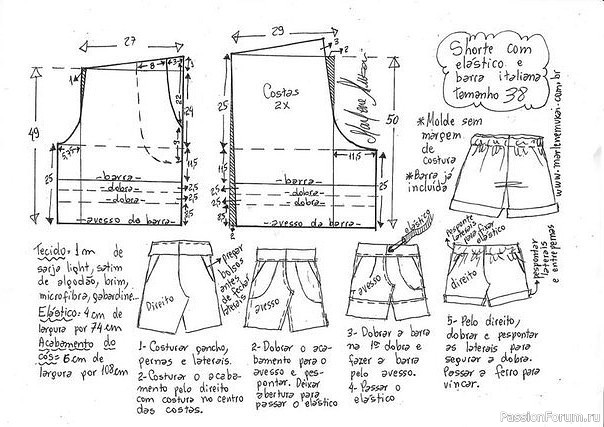 27
29
3
2
1
8
3
3
22
9
49
25
25
5,75
11,5
2,5
2,5
-barra-
-dobra-
-dobra-
-avesso da barra-
Costas
2x
25
11,5
50
25
25
25
11,5
2
-barra-
-dobra-
-dobra-
-avesso da barra-
Marlene Mukai
Shorte com
elástico e
barra italiana
tamanho 38
*Molde sem
margem
de costura
*Barra já
incluída
www.marlenemukai.com.br
Tecido: 1m de
sarja light, satim
de algodão, brim,
microfibra, gabardine...
Elástico: 4 cm de
largura por 74 cm
Acabamento do
cós: 6 cm de
largura por 108 cm
Direito
Pregar
bolsos
antes
de fechar
laterais
1- Costurar gancho,
pernas e laterais.
2- Costurar o acaba-
mento pelo direito
com costura no centro
das costas.
avesso
2- Dobrar o aca-
bamento para o
avesso e pes-
pontar. Deixar
abertura para
passar o elástico
elástico
avesso
3- Dobrar a barra
na 1ª dobra e
fazer a barra
pelo avesso.
4- Passar o
elástico
pesponte
laterais
para fixar
elástico
direito
pespontar
laterais
e entrepernas
5- Pelo direito,
dobrar e pespontar
as laterais para
segurar a dobra.
Passar a ferro para
vincar.
PassionForum.ru